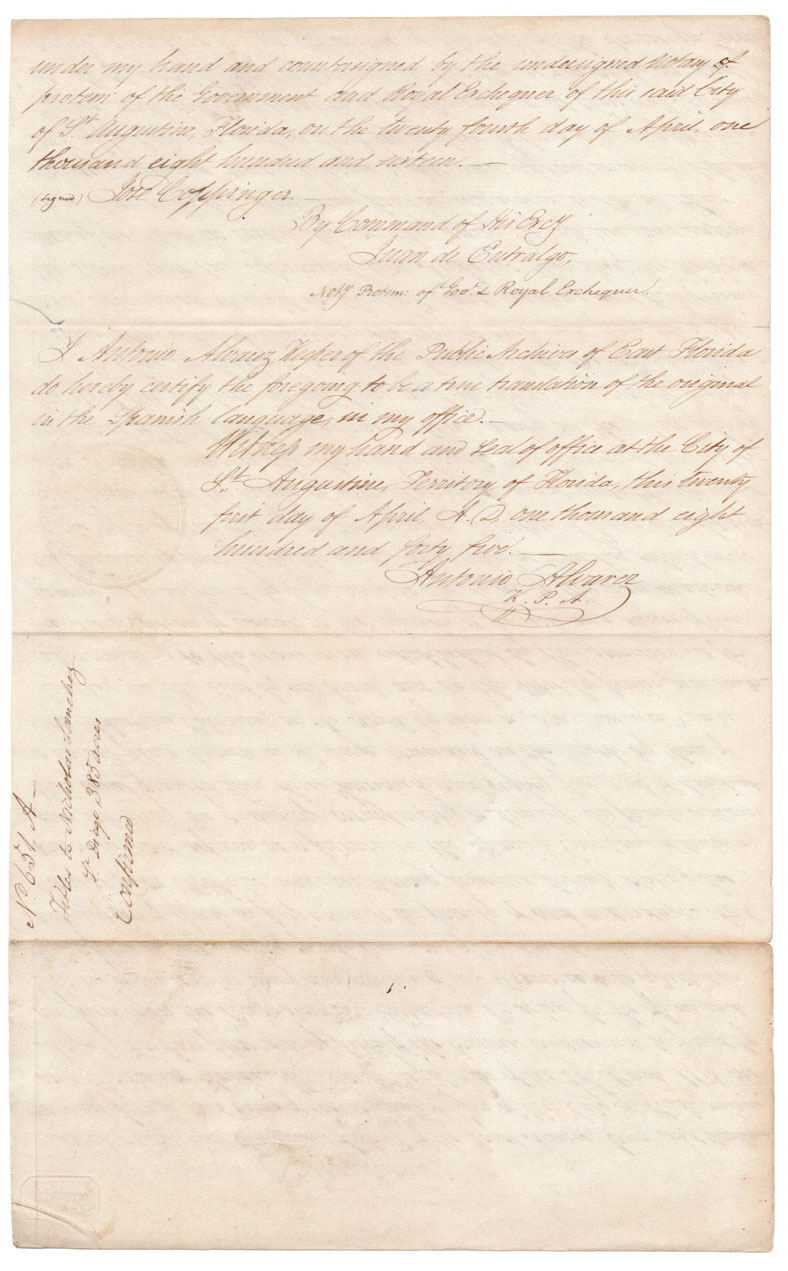 under my hand and countersigned by the undersigned Notary of
protem: of the Government and Royal Exchequer of this said City
of St. Augustine, Florida, on the twenty fourth day of April one
thousand eight hundred and sixteen. —
(signed) José Coppinger. —
By Command of His Excy
Juan de Entralgo,
Noty Protem: of Govt. & Royal Exchequer.
I Antonio Alvarez Keeper of the Public Archives of East Florida
do hereby certify the foregoing to be a true translation of the original
in the Spanish language, in my office. —
Witness my hand and seal of office at the City of
St. Augustine, Territory of Florida, this twenty
first day of April A.D. one thousand eight
hundred and forty five. —
Antonio Alvarez
K. P. A.
No. 651 A —
Titles to Nicholas Sanchez
Sn. Diego 385 acres
Confirmed